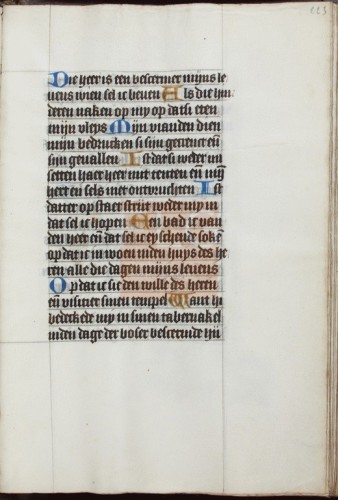 Die heer is een bescermer mijns le
uens wien sel ic beuen Als die hin
deren naken op my op datsi eten
mijn vleys Mijn vianden dien
mijn bedructen si sijn gecrenct eñ
sijn geuallen Ist datsi weder mi
setten haer heer mit tenten eñ mijn
hert en sels niet ontvruchten Ist
datter op staet strijt weder my in
dat sel ic hopen Een bad ic van
den heer eñ dat sel ic eyschende soken
op dat ic in woen inden huys des he
ren alle die dagen mijns leuens
Op dat ic sie den wille des heren
eñ visiner sinen tempel Want hi
bedeckede my in sinen tabernakel
inden dage der boser bescermde hi